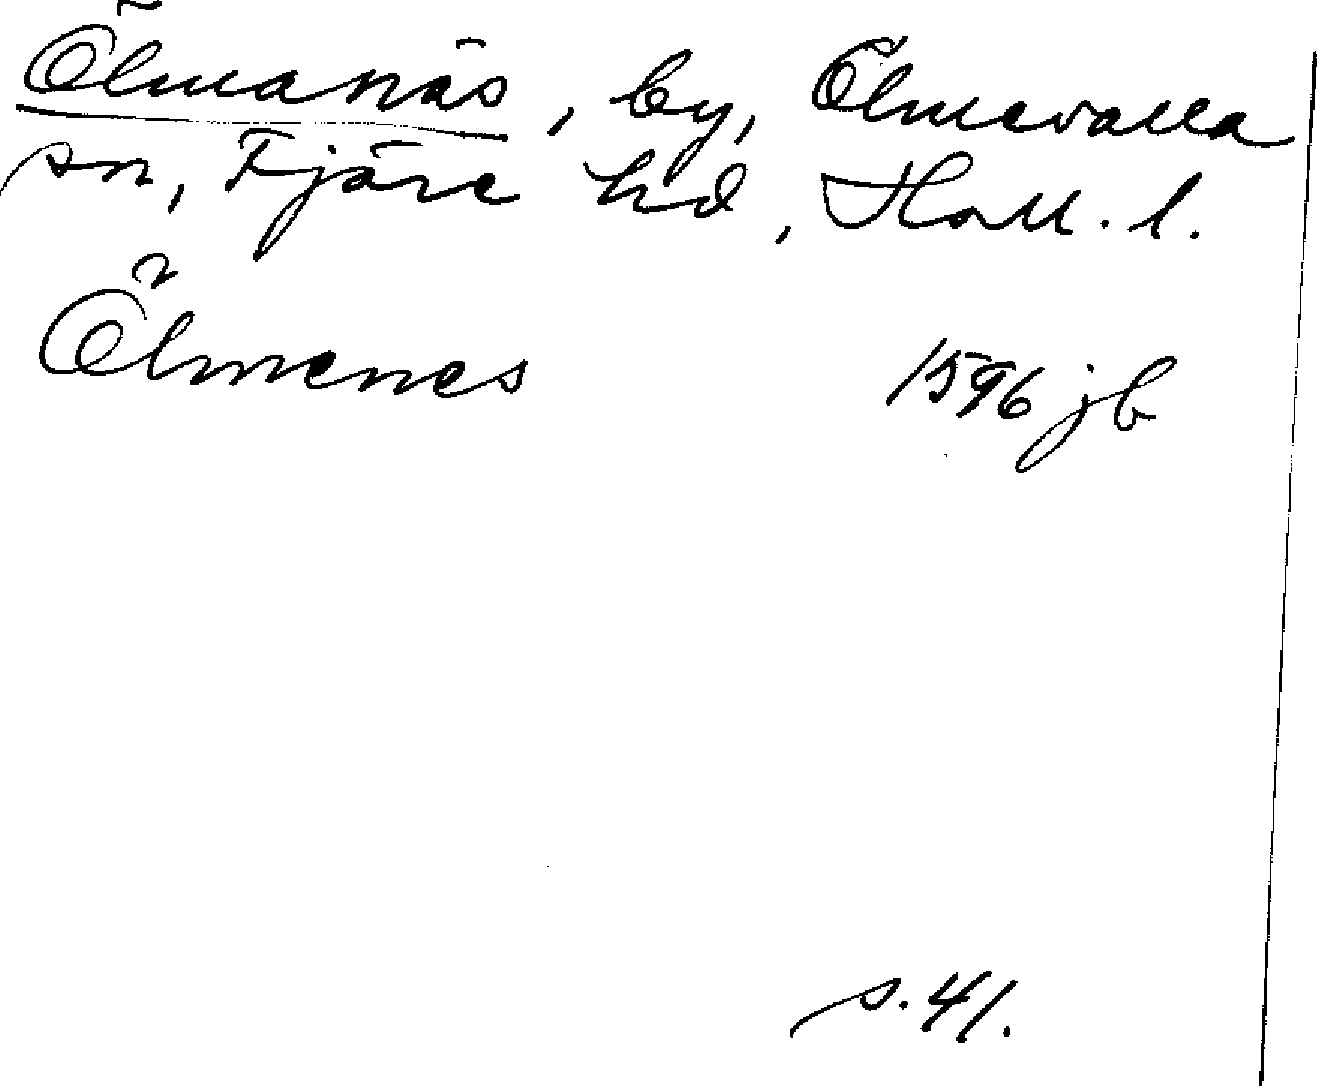 Ölmanäs, by, Ölmevalla
sn, Fjäre hd, Hall. l.
Ölmenes 1596 jb
s. 41.